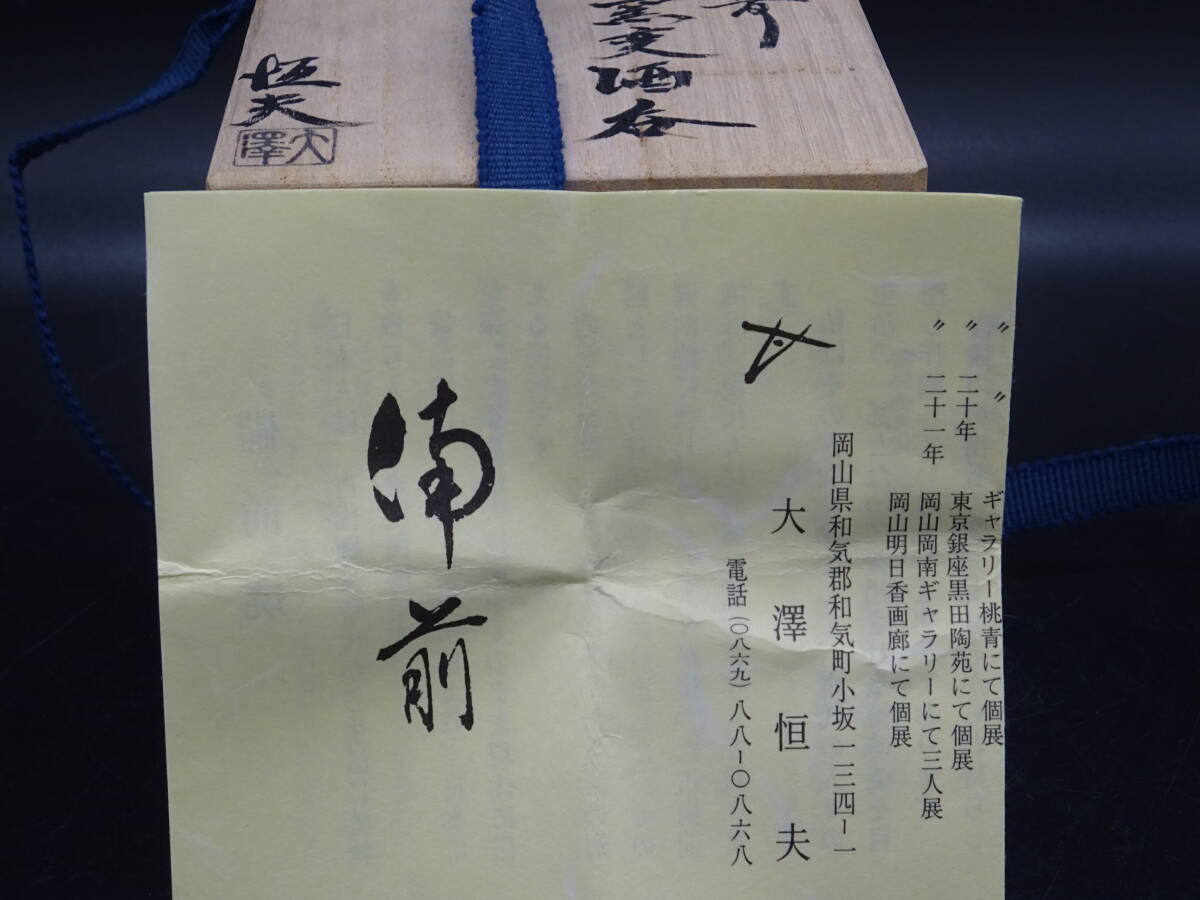 酒呑
恒夫
大澤
〃 〃 ギャラリー桃青にて個展
〃 二十年 東京銀座黒田陶苑にて個展
〃 二十一年 岡山岡南ギャラリーにて三人展
岡山明日香画廊にて個展
岡山県和気郡和気町小坂一一三四ー一
大澤恒夫
電話(〇八六九)八八ー〇八六八
備前